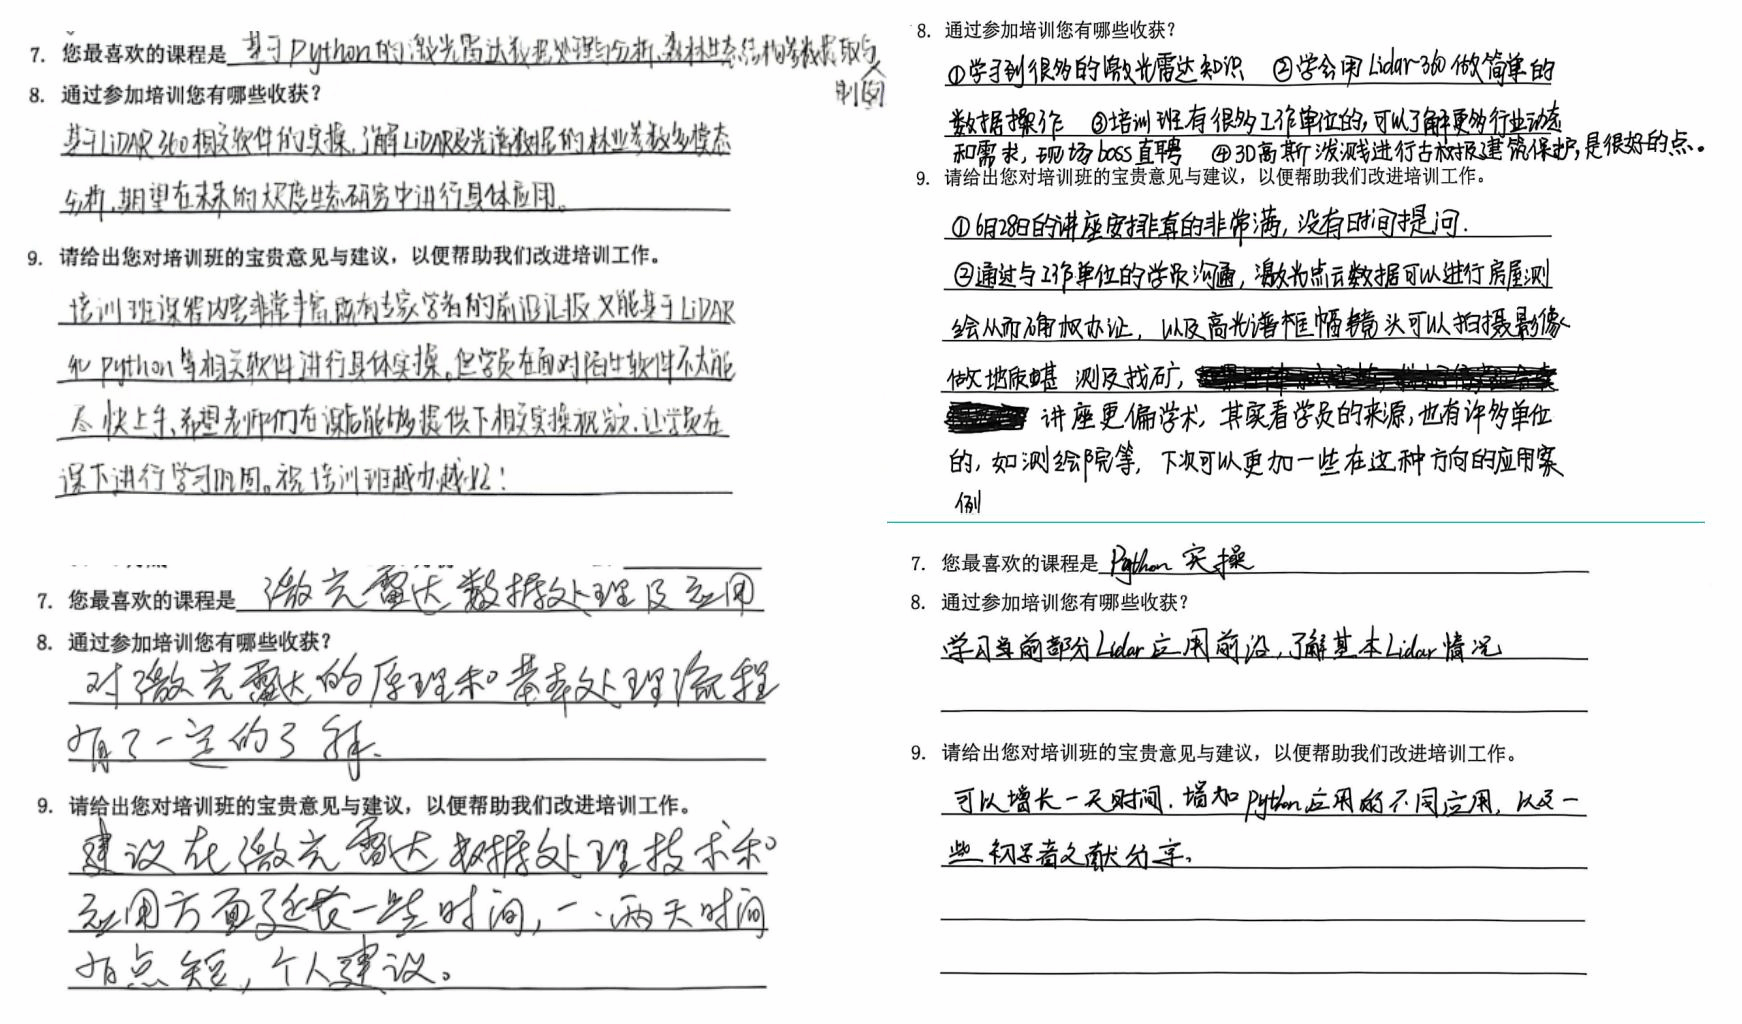 7. 您最喜欢的课程是 基于Python的激光雷达数据处理与分析、森林生态结构参数提取与
制图
8. 通过参加培训您有哪些收获?
基于LiDAR360相关软件的实操,了解LiDAR及光谱数据的林业参数多模态
分析,期望在未来的大尺度生态研究中进行具体应用。
9. 请给出您对培训班的宝贵意见与建议,以便帮助我们改进培训工作。
培训班课程内容非常丰富,既有专家学者的前沿汇报,又能基于LiDAR
和python等相关软件进行具体实操。但学员在面对陌生软件不太能
尽快上手、希望老师们在课后能够提供下相关实操视频,让学员在
课下进行学习巩固。祝培训班越办越好!
8. 通过参加培训您有哪些收获?
①学习到很多的激光雷达知识 ②学会用Lidar-360做简单的
数据操作 ③培训班有很多工作单位的,可以了解更多行业动态
和需求,现场boss直聘 ④3D高斯泼溅进行古树及建筑保护,是很好的点。
9. 请给出您对培训班的宝贵意见与建议,以便帮助我们改进培训工作。
①6月28日的讲座安排真的非常满,没有时间提问.
②通过与工作单位的学员沟通,激光点云数据可以进行房屋测
绘从而确权办证,以及高光谱框幅镜头可以拍摄影像
做地质勘测及找矿,
讲座更偏学术,其实看学员的来源,也有许多单位
的,如测绘院等,下次可以更加一些在这种方向的应用案
例
7. 您最喜欢的课程是 激光雷达数据处理及应用
8. 通过参加培训您有哪些收获?
对激光雷达的原理和基本处理流程
有了一定的了解.
9. 请给出您对培训班的宝贵意见与建议,以便帮助我们改进培训工作。
建议在激光雷达数据处理技术和
应用方面延长一些时间,一、两天时间
有点短,个人建议。
7. 您最喜欢的课程是 Python 实操
8. 通过参加培训您有哪些收获?
学习当前部分Lidar应用前沿,了解基本Lidar情况
9. 请给出您对培训班的宝贵意见与建议,以便帮助我们改进培训工作。
可以增长一天时间.增加python应用的不同应用,以及一
些初学者文献分享.